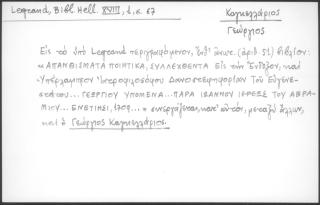 Legrand, Bibl. Hell. XVIII, I, σ. 67
Καγκελλάριος
Γεώργιος
Εἰς τὸ ὑπὸ Legrand περιγραφόμενον, (ἀριθ. 51) βιβλίον:
«ΑΠΑΝΘΙΣΜΑΤΑ ΠΟΙΗΤΙΚΑ, ΣΥΛΛΕΧΘΕΝΤΑ Εἰς τὴν Ἔνδοξον, καὶ
Ὑπέρλαμπρον Ἱεροφιλοσόφου Διανοσεμφορίαν Τοῦ Εὐγενε-
στάτου... ΓΕΩΡΓΙΟΥ ΥΠΟΜΕΝΑ... ΠΑΡΑ ΙΩΑΝΝΟΥ ΙΕΡΕΩΣ ΤΟΥ ΑΒΡΑ-
ΜΙΟΥ... ΕΝΕΤΙΗΣΙ, 1709...» συνεργάζεται, κατ' αὐτόν, μεταξὺ ἄλλων,
καὶ ὁ Γεώργιος Καγκελλάριος.